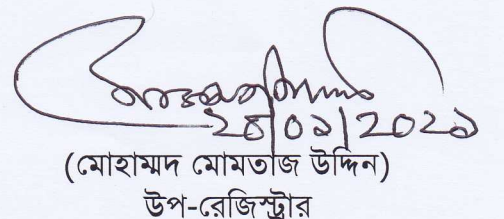 ২৪/০১/২০২১
(মোহাম্মদ মোমতাজ উদ্দিন)
উপ-রেজিস্ট্রার